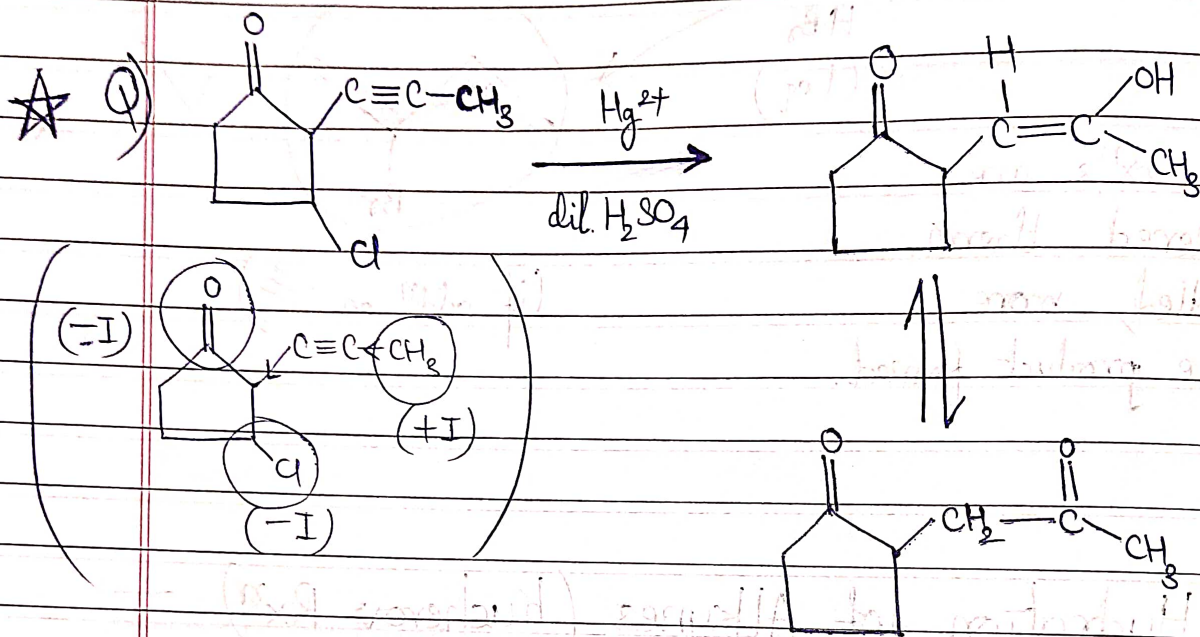 Q)
O
C≡C-CH₃
Cl
Hg²⁺
dil. H₂SO₄
O
H
C=C
OH
CH₃
(-I)
O
C≡C
CH₃
(+I)
Cl
(-I)
O
CH₂-C
O
CH₃